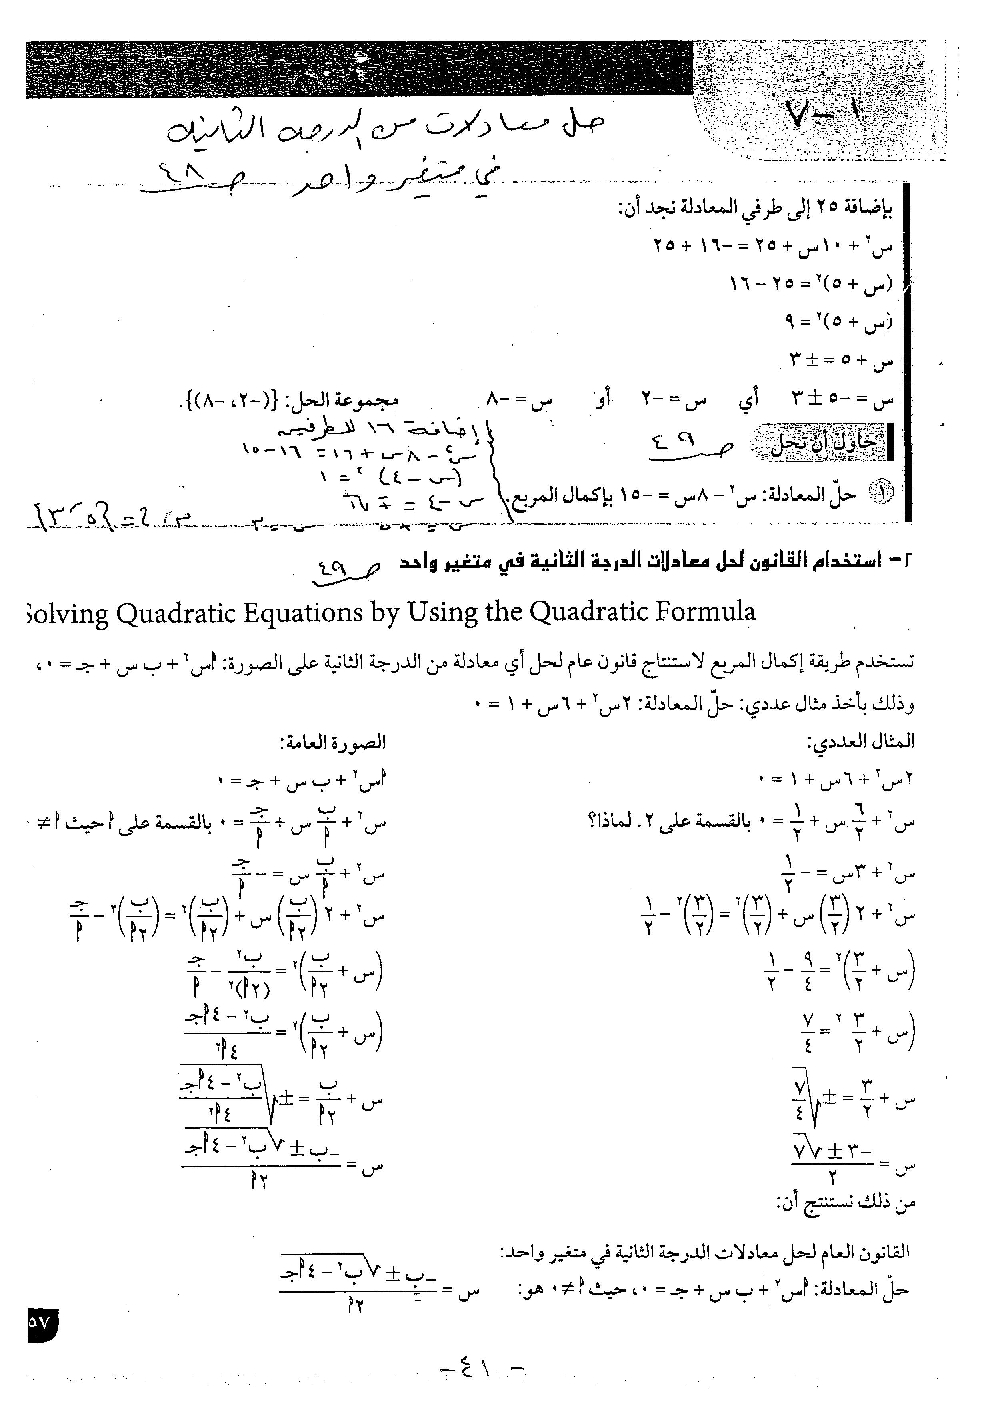 ١-٧
حل معادلات من الدرجة الثانية
في متغير واحد ص ٤٨
بإضافة ٢٥ إلى طرفي المعادلة نجد أن:
س² + ١٠س + ٢٥ = -١٦ + ٢٥
(س + ٥)² = ٢٥ - ١٦
(س + ٥)² = ٩
س + ٥ = ± ٣
س = -٥ ± ٣ أي س = -٢ أو س = -٨ مجموعة الحل: {(-٢، -٨)}.
حاول أن تحل ص ٤٩
إضافة ١٦ للطرفين
س² - ٨س + ١٦ = ١٦ - ١٥
(س - ٤)² = ١
١ حلّ المعادلة: س² - ٨س = -١٥ بإكمال المربع.
٢- استخدام القانون لحل معادلات الدرجة الثانية في متغير واحد ص ٤٩
Solving Quadratic Equations by Using the Quadratic Formula
تستخدم طريقة إكمال المربع لاستنتاج قانون عام لحل أي معادلة من الدرجة الثانية على الصورة: أس² + ب س + جـ = ٠،
وذلك بأخذ مثال عددي: حلّ المعادلة: ٢س² + ٦س + ١ = ٠
المثال العددي:
٢س² + ٦س + ١ = ٠
س² + ٦/٢ س + ١/٢ = ٠ بالقسمة على ٢. لماذا؟
س² + ٣س = - ١/٢
س² + ٢(٣/٢)س + (٣/٢)² = (٣/٢)² - ١/٢
(س + ٣/٢)² = ٩/٤ - ١/٢
(س + ٣/٢ ² = ٧/٤
س + ٣/٢ = ± √(٧/٤)
س = (-٣ ± √٧)/٢
من ذلك نستنتج أن:
الصورة العامة:
أس² + ب س + جـ = ٠
س² + ب/أ س + جـ/أ = ٠ بالقسمة على أ حيث أ ≠ ٠
س² + ب/أ س = - جـ/أ
س² + ٢(ب/٢أ)س + (ب/٢أ)² = (ب/٢أ)² - جـ/أ
(س + ب/٢أ)² = ب²/(٢أ)² - جـ/أ
(س + ب/٢أ)² = (ب² - ٤أجـ)/٤أ²
س + ب/٢أ = ± √((ب² - ٤أجـ)/٤أ²)
س = (-ب ± √(ب² - ٤أجـ))/٢أ
القانون العام لحل معادلات الدرجة الثانية في متغير واحد:
حلّ المعادلة: أس² + ب س + جـ = ٠، حيث أ ≠ ٠ هو: س = (-ب ± √(ب² - ٤أجـ))/٢أ
٥٧
- ٤١ -